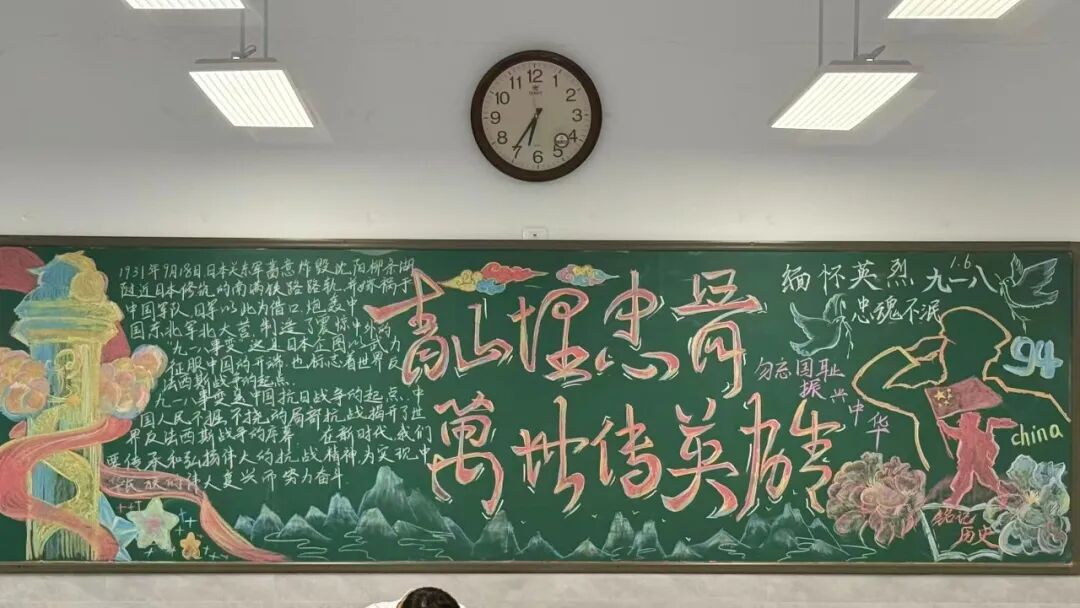 12
1
2
3
4
5
6
7
8
9
10
11
1931年9月18日日本关东军蓄意炸毁沈阳柳条湖
附近日本修筑的南满铁路路轨,并嫁祸于
中国军队,日军以此为借口,炮轰中
国东北军北大营,制造了震惊中外的
"九一八事变"这是日本企图以武力
征服中国的开端,也标志着世界反
法西斯战争的起点.
九一八事变是中国抗日战争的起点,中
国人民不屈不挠的局部抗战揭开了世
界反法西斯战争的序幕.在新时代,我们
要传承和弘扬伟大的抗战精神,为实现中
华民族的伟大复兴而努力奋斗
青山埋忠骨
萬世传英魂
缅怀英烈
忠魂不泯
1.6
九一八
勿忘国耻
振兴中华
94
china
铭记
历史